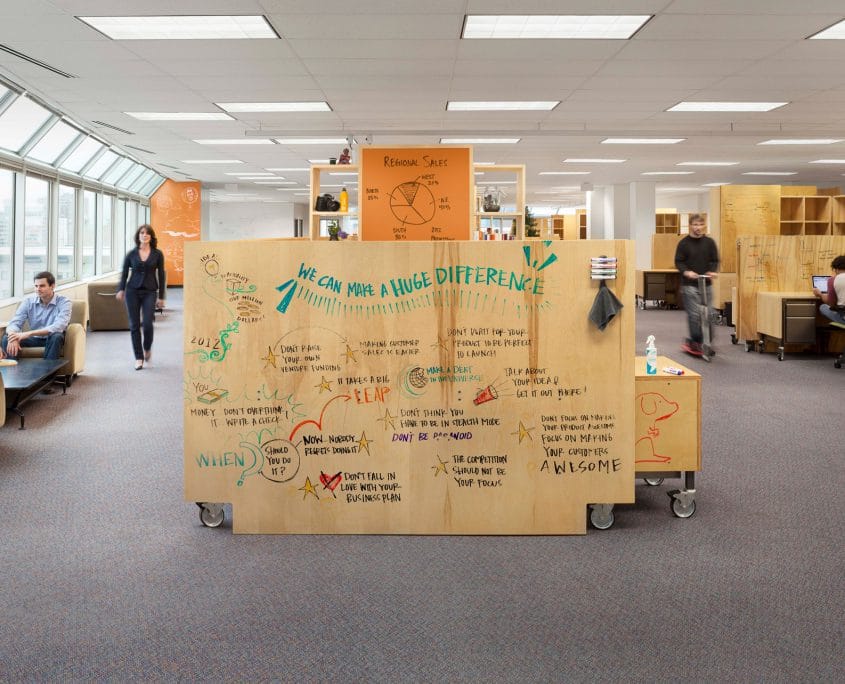 REGIONAL SALES
WEST
NORTH
N.E.
SOUTH
2012
WE CAN MAKE A HUGE DIFFERENCE
ONE MILLION
DOLLARS!
2012
DON'T RAISE
YOUR OWN
VENTURE FUNDING
MAKING CUSTOMER
SALES IS EASIER
DON'T WAIT FOR YOUR
PRODUCT TO BE PERFECT
TO LAUNCH
IT TAKES A BIG
LEAP
MAKE A DENT
IN THE UNIVERSE
TALK ABOUT
YOUR IDEA &
GET IT OUT THERE!
YOU
MONEY
DON'T OVERTHINK
IT. WRITE A CHECK!
DON'T THINK YOU
HAVE TO BE IN STEALTH MODE
DON'T BE PARANOID
DON'T FOCUS ON MAKING
YOUR PRODUCT AWESOME
FOCUS ON MAKING
YOUR CUSTOMERS
AWESOME
WHEN?
SHOULD
YOU DO
IT?
NOW. NOBODY
REGRETS DOING IT
DON'T FALL IN
LOVE WITH YOUR
BUSINESS PLAN
THE COMPETITION
SHOULD NOT BE
YOUR FOCUS